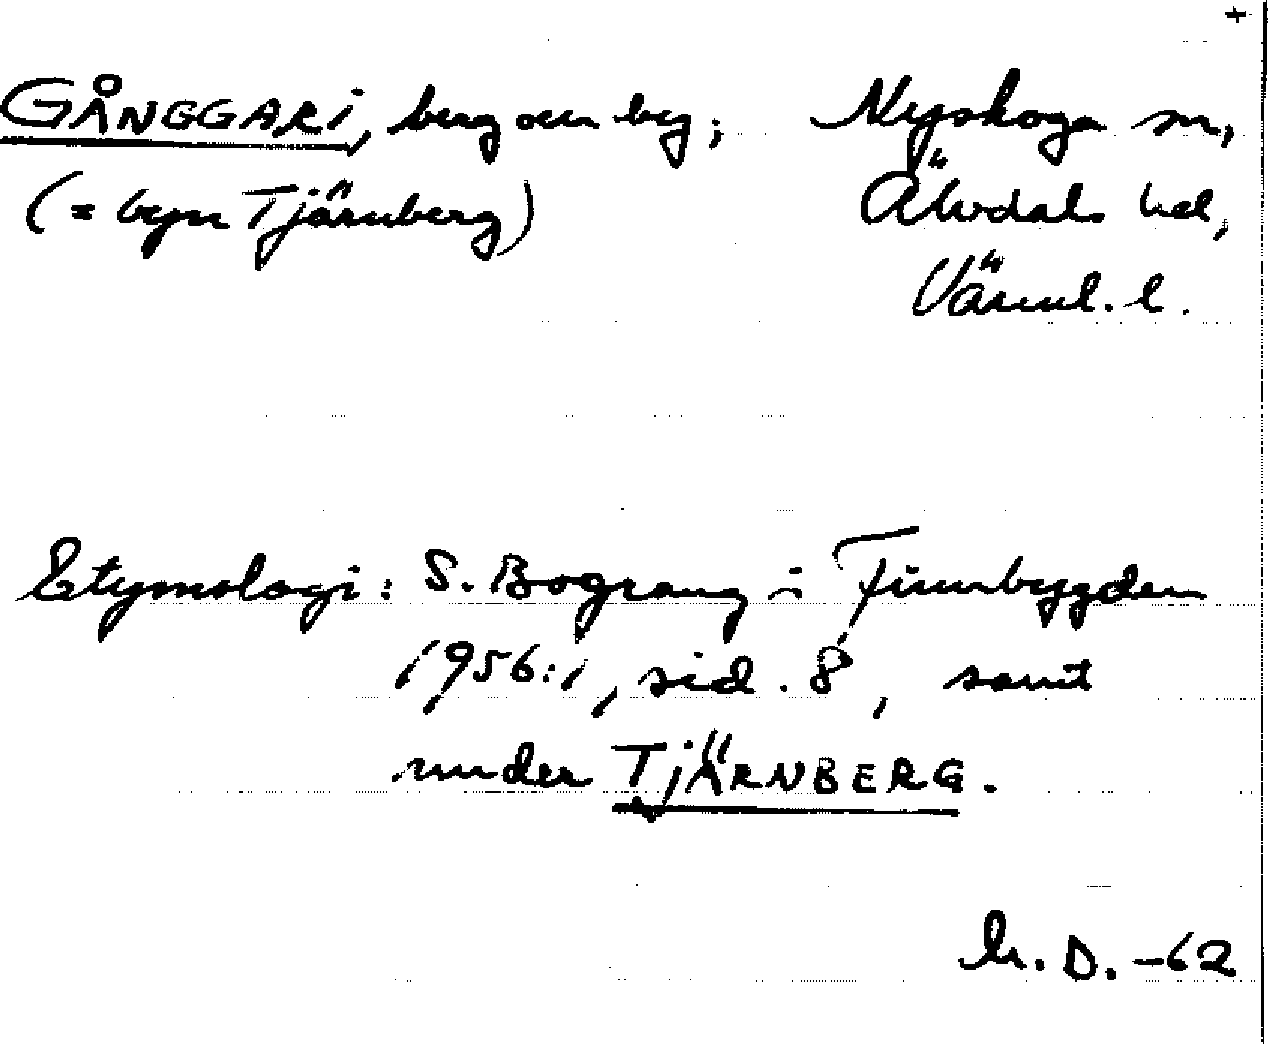 +
GÅNGGARI, berg och by; Nyskoga sn,
(= byn Tjärnberg) Älvdals hd,
Värml. l.
Etymologi: S. Bograng i Finnbygden
1956:1, sid. 8, samt
under TJÄRNBERG.
h. D. -62